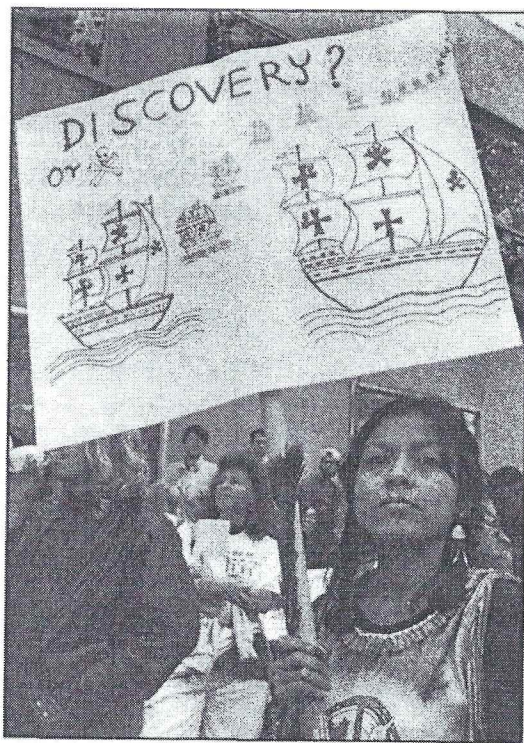 DISCOVERY?
or